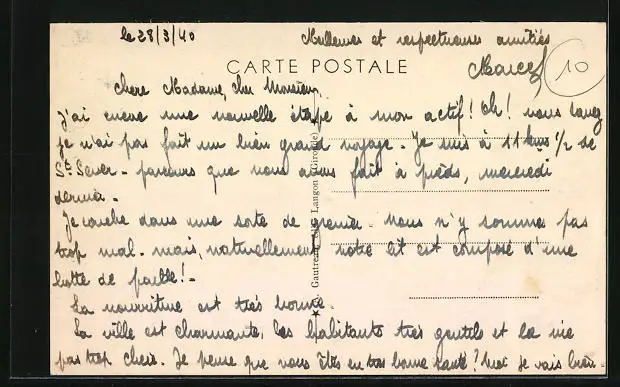 le 28/3/40
Meilleures et respectueuses amitiés
Marcel
10
CARTE POSTALE
Chère Madame, cher Monsieur,
J'ai encore une nouvelle étape à mon actif! Oh! vous savez
je n'ai pas fait un bien grand voyage - Je suis à 11 kms 1/2 de
St Sever - parcours que nous avons fait à pieds, mercredi
dernier -
Je couche dans une sorte de grenier - nous n'y sommes pas
trop mal - mais, naturellement notre lit est composé d'une
botte de paille! -
La nourriture est très bonne -
La ville est charmante, les habitants très gentils et la vie
pas trop chère. Je pense que vous êtes en très bonne santé? Moi je vais bien -
Gautreau, Langon (Gironde)